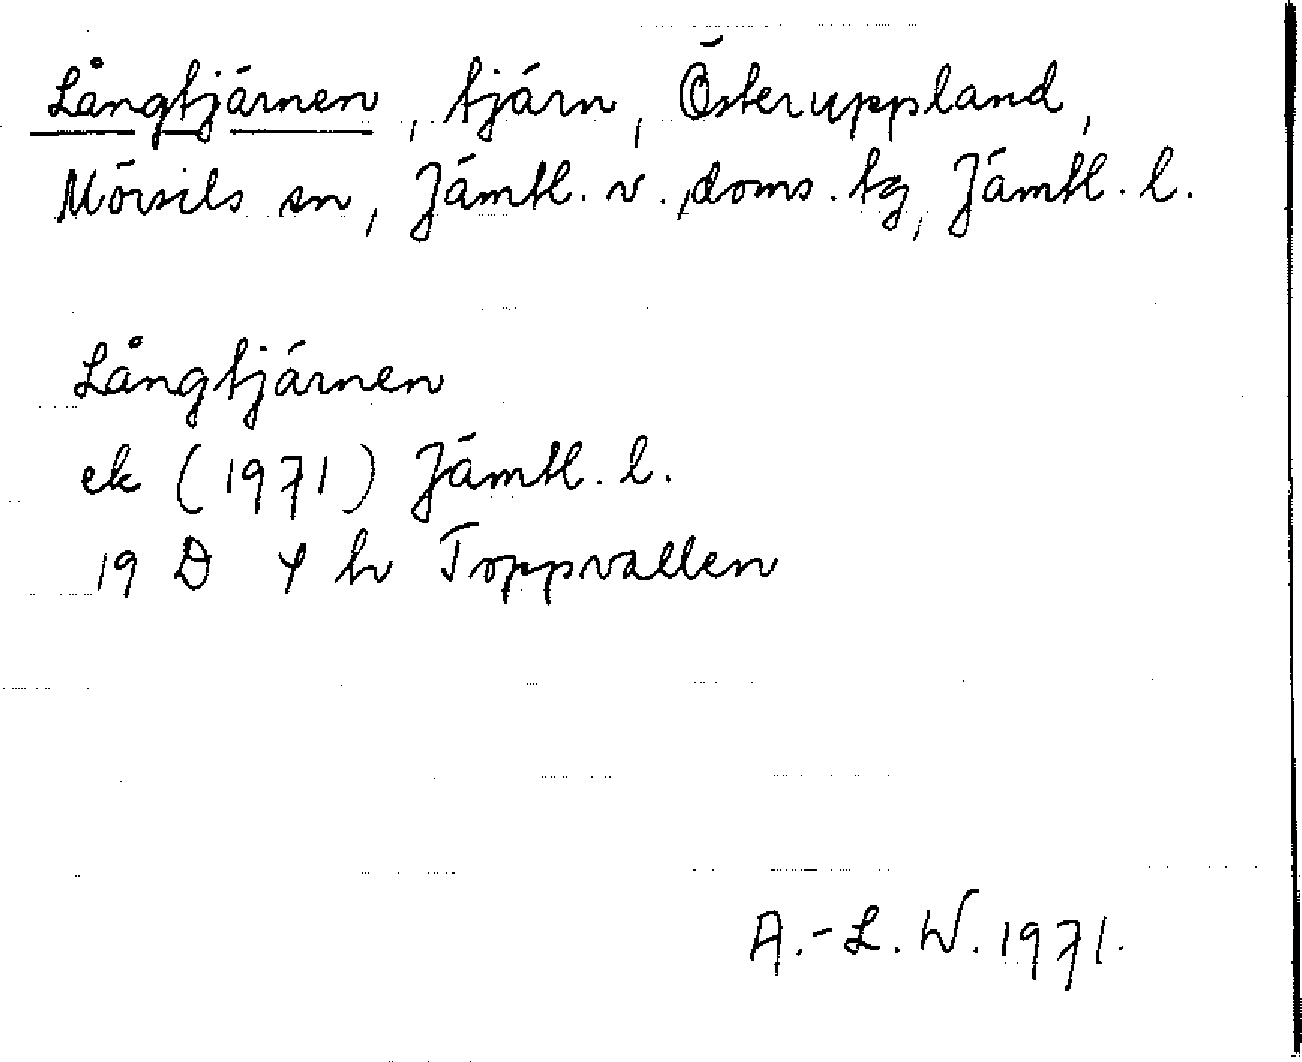 Långtjärnen, tjärn, Österuppland,
Mörsils sn, Jämtl. v. doms. tg, Jämtl. l.
Långtjärnen
ek (1971) Jämtl. l.
19 D 4 h Toppvallen
A.-L. W. 1971.